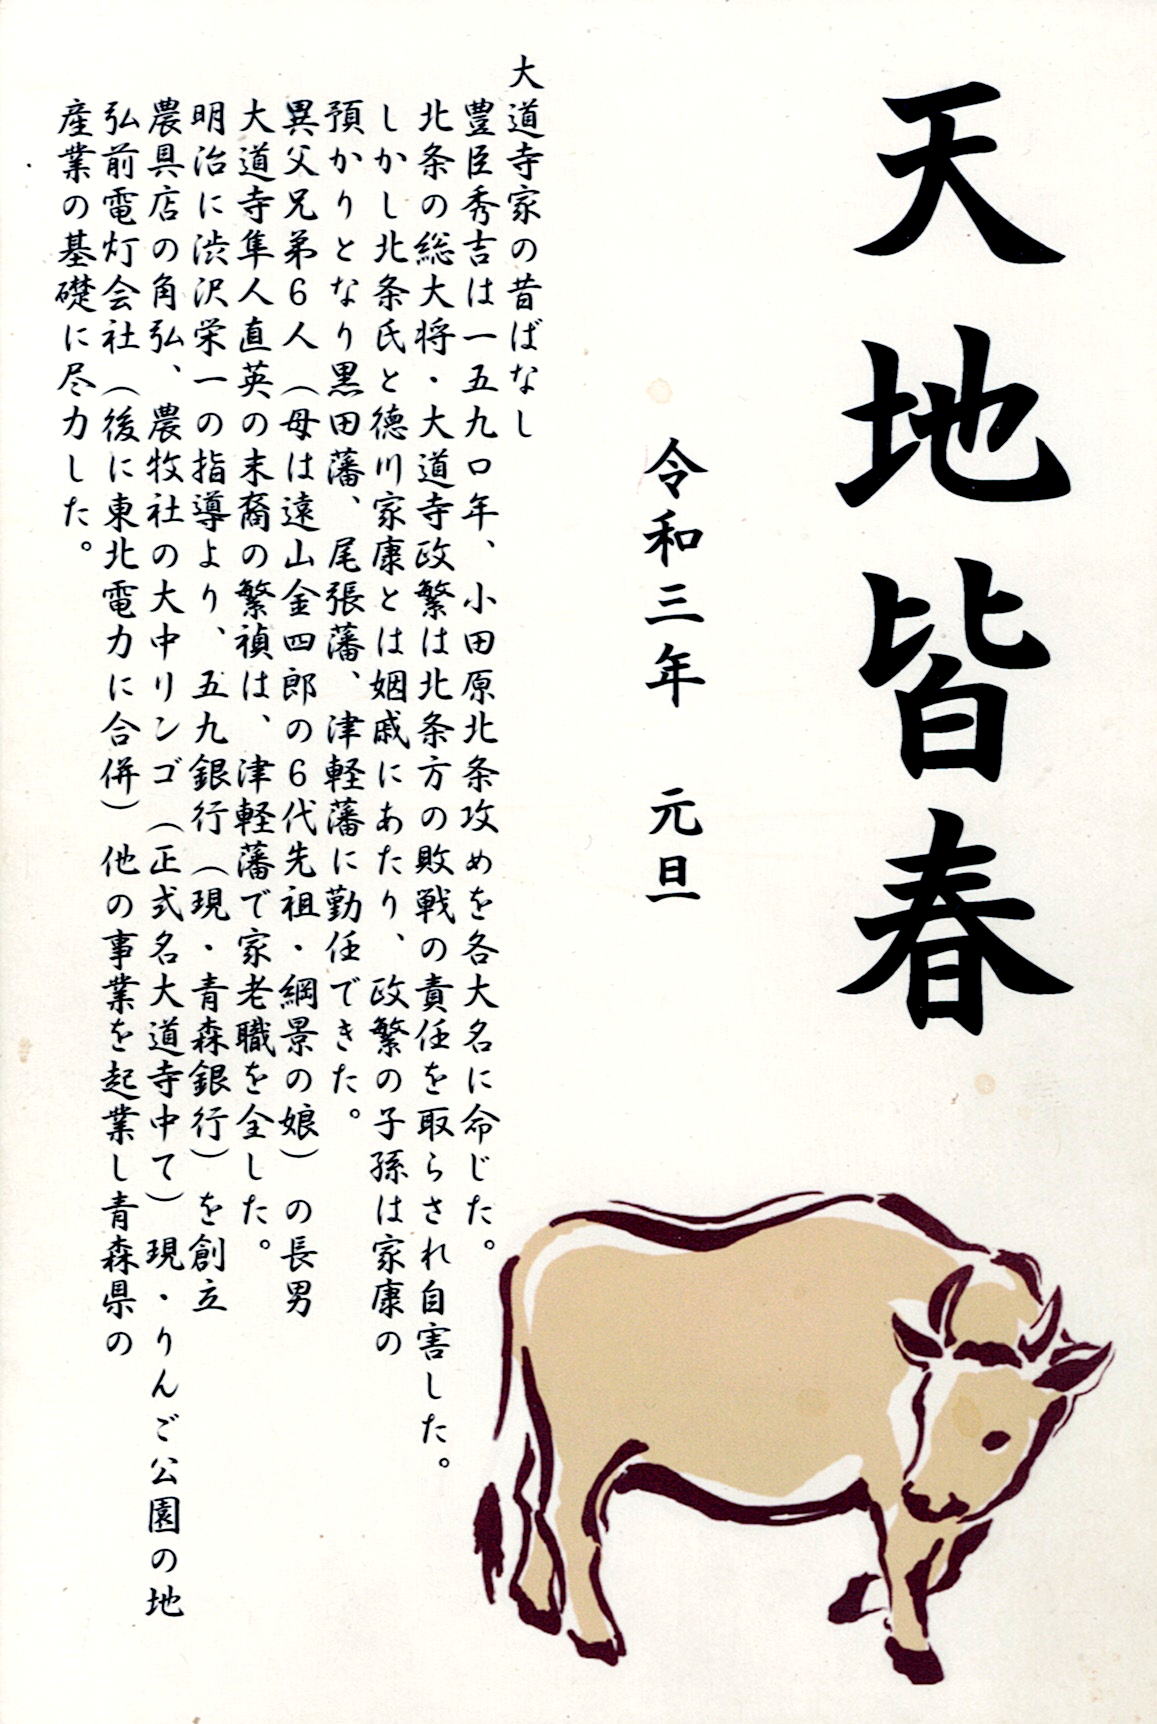 天地皆春
令和三年　元旦
大道寺家の昔ばなし
豊臣秀吉は一五九〇年、小田原北条攻めを各大名に命じた。
北条の総大将・大道寺政繁は北条方の敗戦の責任を取らされ自害した。
しかし北条氏と徳川家康とは姻戚にあたり、政繁の子孫は家康の
預かりとなり黒田藩、尾張藩、津軽藩に勤任できた。
異父兄弟6人（母は遠山金四郎の6代先祖・綱景の娘）の長男
大道寺隼人直英の末裔の繁禎は、津軽藩で家老職を全した。
明治に渋沢栄一の指導より、五九銀行（現・青森銀行）を創立
農具店の角弘、農牧社の大中リンゴ（正式名大道寺中て）現・りんご公園の地
弘前電灯会社（後に東北電力に合併）他の事業を起業し青森県の
産業の基礎に尽力した。